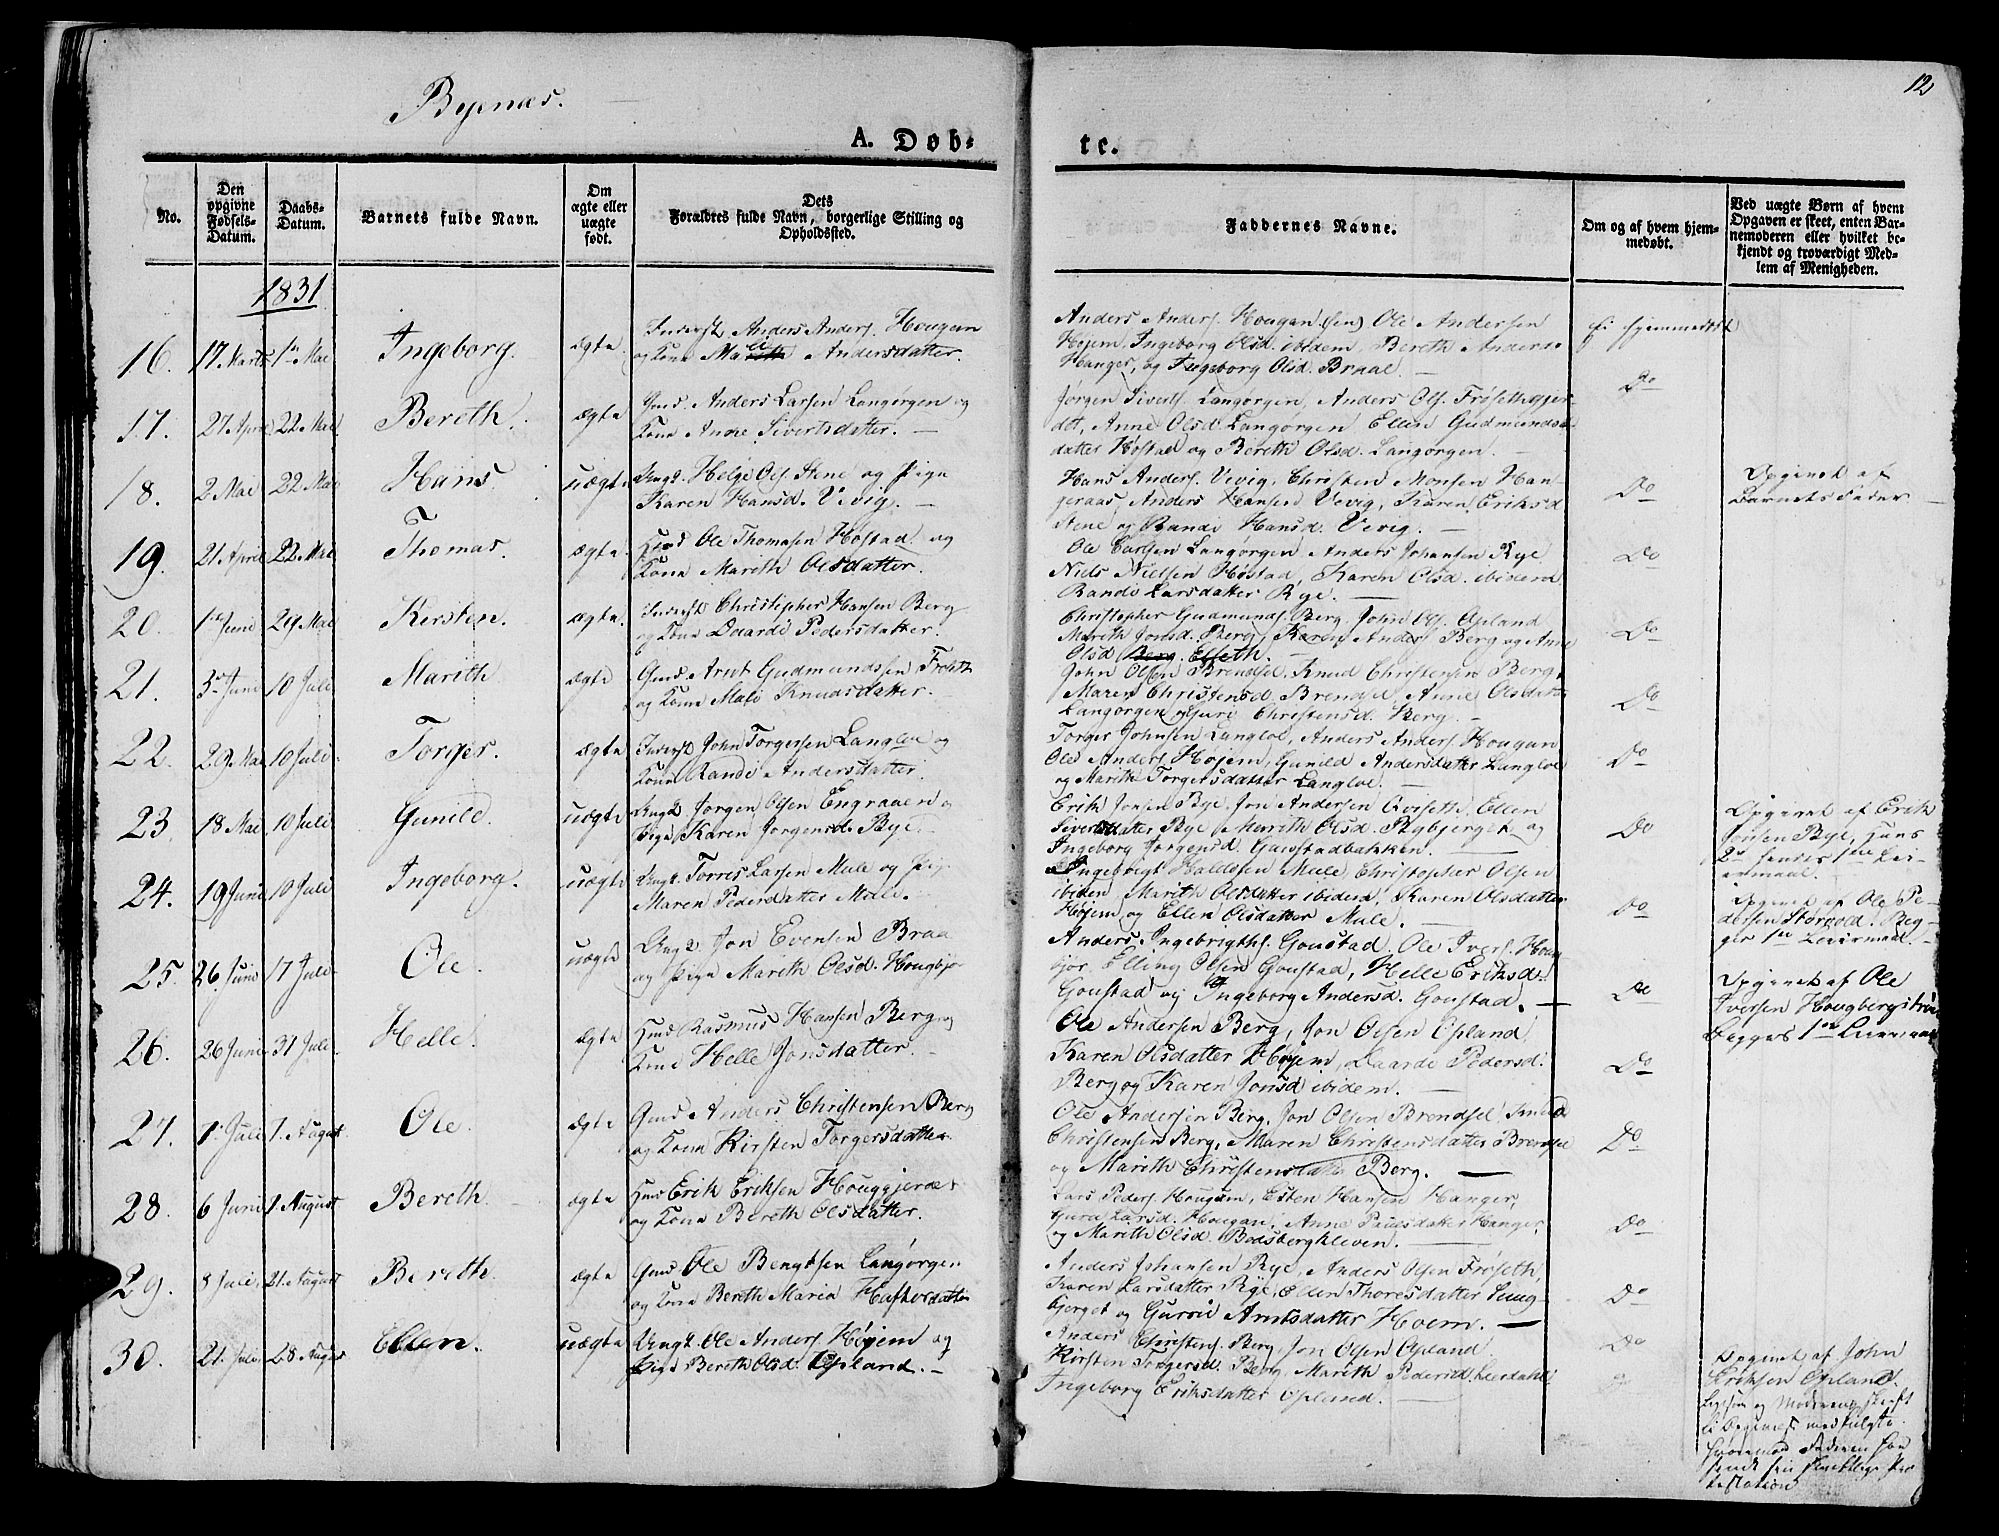 Byenæs.
12
A. Døb-
te.
No.
Den opgivne Fødsels-Datum.
Daabs-Datum.
Barnets fulde Navn.
Om ægte eller uægte født.
Dets Forældres fulde Navn, borgerlige Stilling og Opholdssted.
Faddernes Navne.
Om og af hvem hjem-medøbt.
Ved uægte Børn af hvem Opgaven er skeet, enten Bar-nemoderen eller hvilket be-kjendt og troværdigt Med-lem af Menigheden.
1831
16. 17 Marts 1ste Mai Ingeborg. ægte
Inderst Anders Anders. Hougan
og Kone Mali Andersdatter.
Anders Anders. Hougan (sen) Ole Andersen
Højem, Ingeborg Olsd. ibidem, Bereth Anders.
Hanger, og Ingeborg Olsd. Braal.
Ei hjemmedøbt
17. 27 April 22 Mai Bereth. ægte
Gmd. Anders Larsen Langørgen og
Kone Anne Sivertsdatter.
Jørgen Sivertss. Langørgen, Anders Ols. Frøsethgjer-
det, Anne Olsd. Langørgen Ellen Gudmunds-
datter Høstad og Bereth Olsd. Langørgen.
Do
18. 2 Mai 22 Mai Hans. uægte
Ungk. Helge Ols. Stene og Pige
Karen Hansd. Vevig.
Hans Anders. Vevig, Christen Monsen Han-
geraas, Anders Hansen Vevig, Karen Eriksd
Stene og Randi Hansd. Vevig.
Do
Opgivet af
Barnets Fader
19. 21 April 22 Mai Thomas. ægte
Hmd Ole Thomasen Høstad og
Kone Mareth Olsdatter.
Ole Larsen Langørgen, Anders Johansen Rye
Niels Nielsen Høstad, Karen Olsd. ibidem
Randi Larsdatter Rye.
Do
20. 1ste Juni 29 Mai Kersten. ægte.
Inderst Christopher Hansen Berg
og Kone Daarde Pedersdatter.
Christopher Gudmunds. Berg, John Ols. Opland
Mareth Jonsd. Berg, Karen Anders Berg og Anne
Olsd Berg. Elseth.
Do
21. 3de Juni 10 Juli Mareth ægte
Gmd. Arnt Gudmundssen Frøseth
og Kone Mali Knudsdatter.
John Olsen Brendsel. Knud Christensen Berg,
Maren Christensd. Brendsel, Anne Olsdatr
Langørgen og Guri Christensd. Berg.
Do
22. 29 Mai 10 Juli Torger. ægte
Inderst John Torgersen Langloe og
Kone Randi Andersdatter.
Torger Johnsen Langloe, Anders Anders. Hougan
Ole Anders. Højem, Gunild Andersdatter Langloe
og Mareth Torgersdatter Langloe.
Do
23. 18 Mai 10 Juli Gunild. uægte
Ungk. Jørgen Olsen Engraaen og
Pige Karen Jørgensd. Bye.
Erik Jonsen Bye, Jon Andersen Qviseth, Ellen
Sivertsdatter Bye, Mareth Olsd. Rybjerget og
Ingeborg Jørgensd. Gaustadbakken.
Do
Opgivet af Erik
Jonsen Bye, hans
2det hendes 1ste Lei-
ermaal.
24. 19 Juni 10 Juli Ingeborg. uægte
Ungk. Torris Larsen Mule og Pige
Maren Pedersdatter Mule.
Ingebrigt Haldosen Mule Christopher Olsen
ibidem Mareth Olsdatter ibidem, Karen Olsdatter
Højem og Ellen Olsdatter Mule.
Do
Opgivet af Ole Pe-
dersen Storvold. Beg-
ges 1ste Leiermaal.
25. 26 Juni 17 Juli Ole. uægte
Ungk Jon Evensen Braa
og Pige Mareth Olsd. Hougbjør
Anders Ingebrigths. Goustad. Ole Ivers. Houg-
bjør. Elling Olsen Goustad, Helle Eriksd.
Goustad og Ingeborg Andersd. Goustad.
Do
Opgivet af Ole
Iversen Hougberg
Begges 1ste Leiermaal
26. 26 Juni 31 Juli. Helle. ægte
Hmd Rasmus Hansen Berg og
Kone Helle Jonsdatter.
Ole Andersen Berg, Jon Olsen Opland
Karen Olsdatter Højem, Daarde Pedersd.
Berg og Karen Jonsd ibidem.
Do
27. 1. Juli 7. August Ole. ægte
Gmd Anders Christensen Berg
og Kone Kirsten Torgersdatter
Ole Andersen Berg, Jon Olsen Brendsel, Knud
Christensen Berg, Maren Christensdatter Brendsel
og Mareth Christensdatter Berg.
Do
28. 6 Juni 7. August Bereth ægte
Hmd Erik Eriksen Houggjerdet
og Kone Bereth Olsdatter.
Lars Peders. Hougum, Esten Hansen Hanger,
Guru Larsd. Hougan, Anne Paulsdatter Hanger,
og Mareth Olsd. Bødsbergkleven.
Do
29. 8 Juli. 21. August Bereth. ægte
Gmd Ole Bengtsen Langørgen
og Kone Bereth Maria Hafkorsdatter
Anders Johansen Rye, Anders Olsen Frøseth,
Karen Larsdatter Rye, Ellen Thoresdatter Ling-
bjerget og Gurrie Arntsdatter Hoem.
Do
30. 21. Juli. 28 August Ellen. uægte
Ungk. Ole Anders. Højem og
Pige Bereth Olsd. Opland.
Anders Christens. Berg Jon Olsen Opland
Kirsten Torgersd. Berg, Mareth Pedersd. Leerdahl,
Ingeborg Eriksdatter Opland.
Do
Opgivet af John
Eriksen Opland.
Ligesom og Moderens skrift-
li Opgivels medfulgte.
hvorimod Faderen har
sendt sin skriftlige Pro
testation